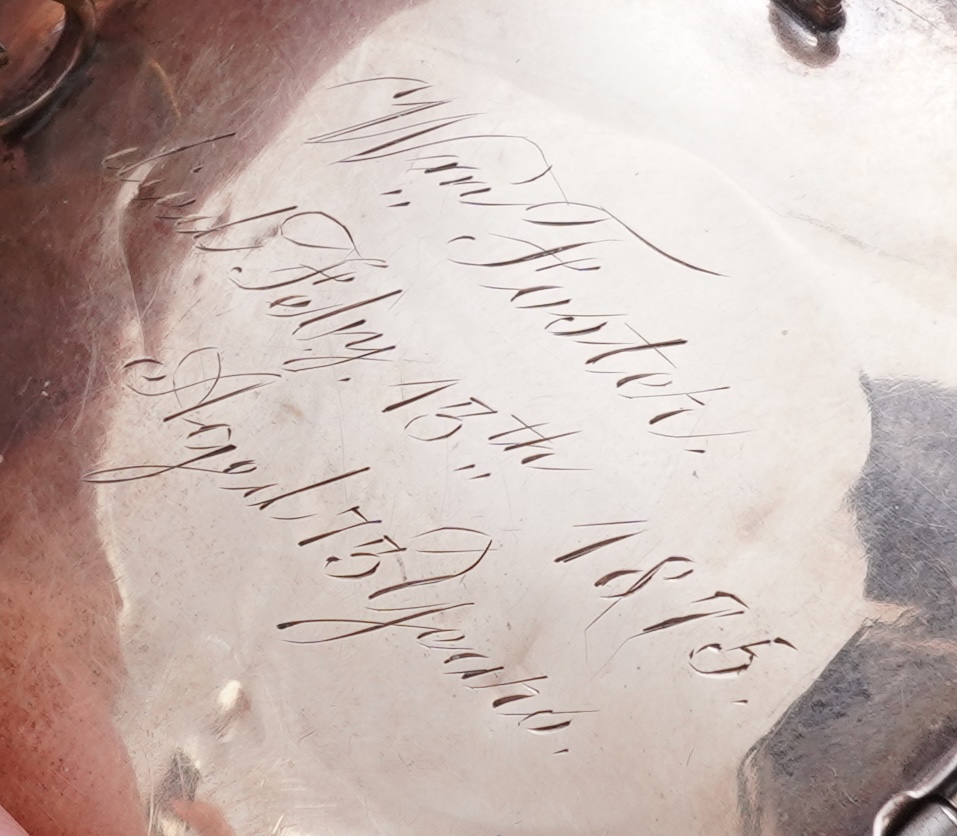 Wm. Foster.
died Feby. 13th 1875.
Aged 73 Years.